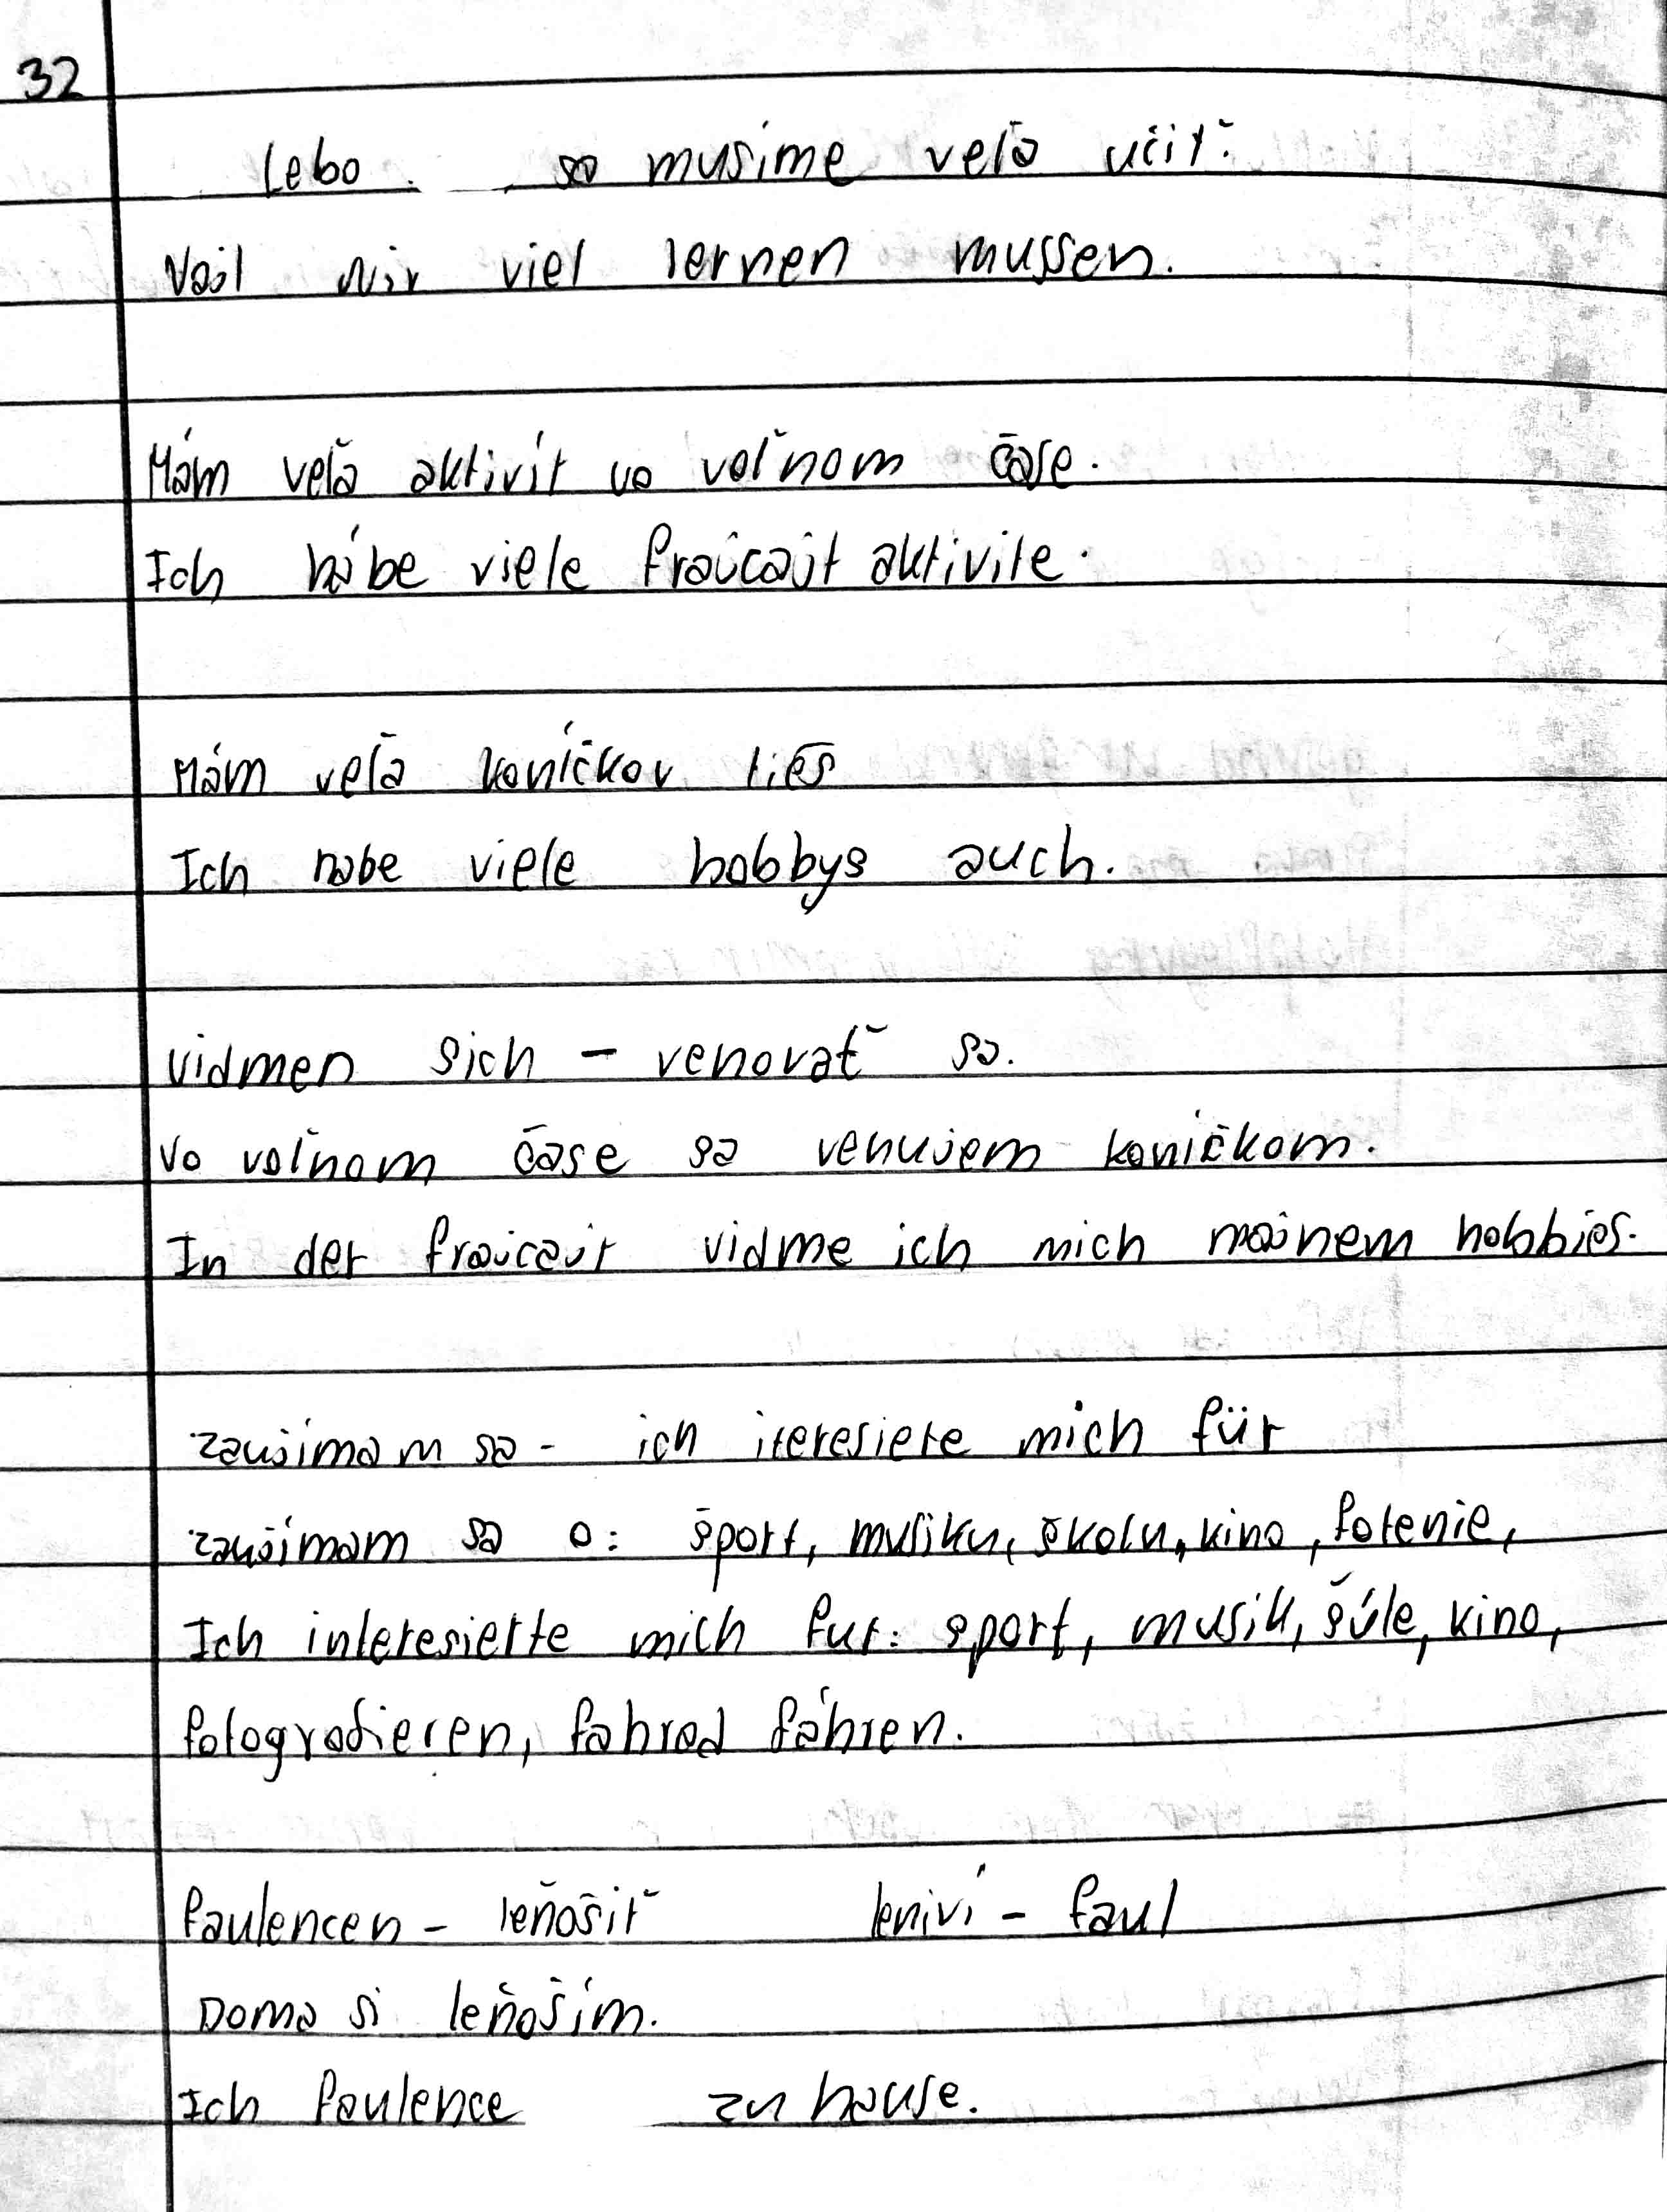 32
Lebo sa musíme veľa učiť.
Vail wir viel lernen mussen.
Mám veľa aktivít vo voľnom čase.
Ich hábe viele fraicait aktivite.
Mám veľa koníčkov tiež
Ich habe viele hobbys auch.
vidmen sich - venovať sa.
Vo voľnom čase sa venujem koníčkom.
In der fraicait vidme ich mich mainem hobbies.
zauśimam sa - ich iteresiere mich für
zaušimam sa o: šport, musiku, školu, kino, fotenie,
Ich interesierte mich fur: sport, musik, šúle, kino,
fotografieren, fahrad fáhren.
faulencen - leňošiť leniví - faul
Doma si leňoším.
Ich faulence zu hause.